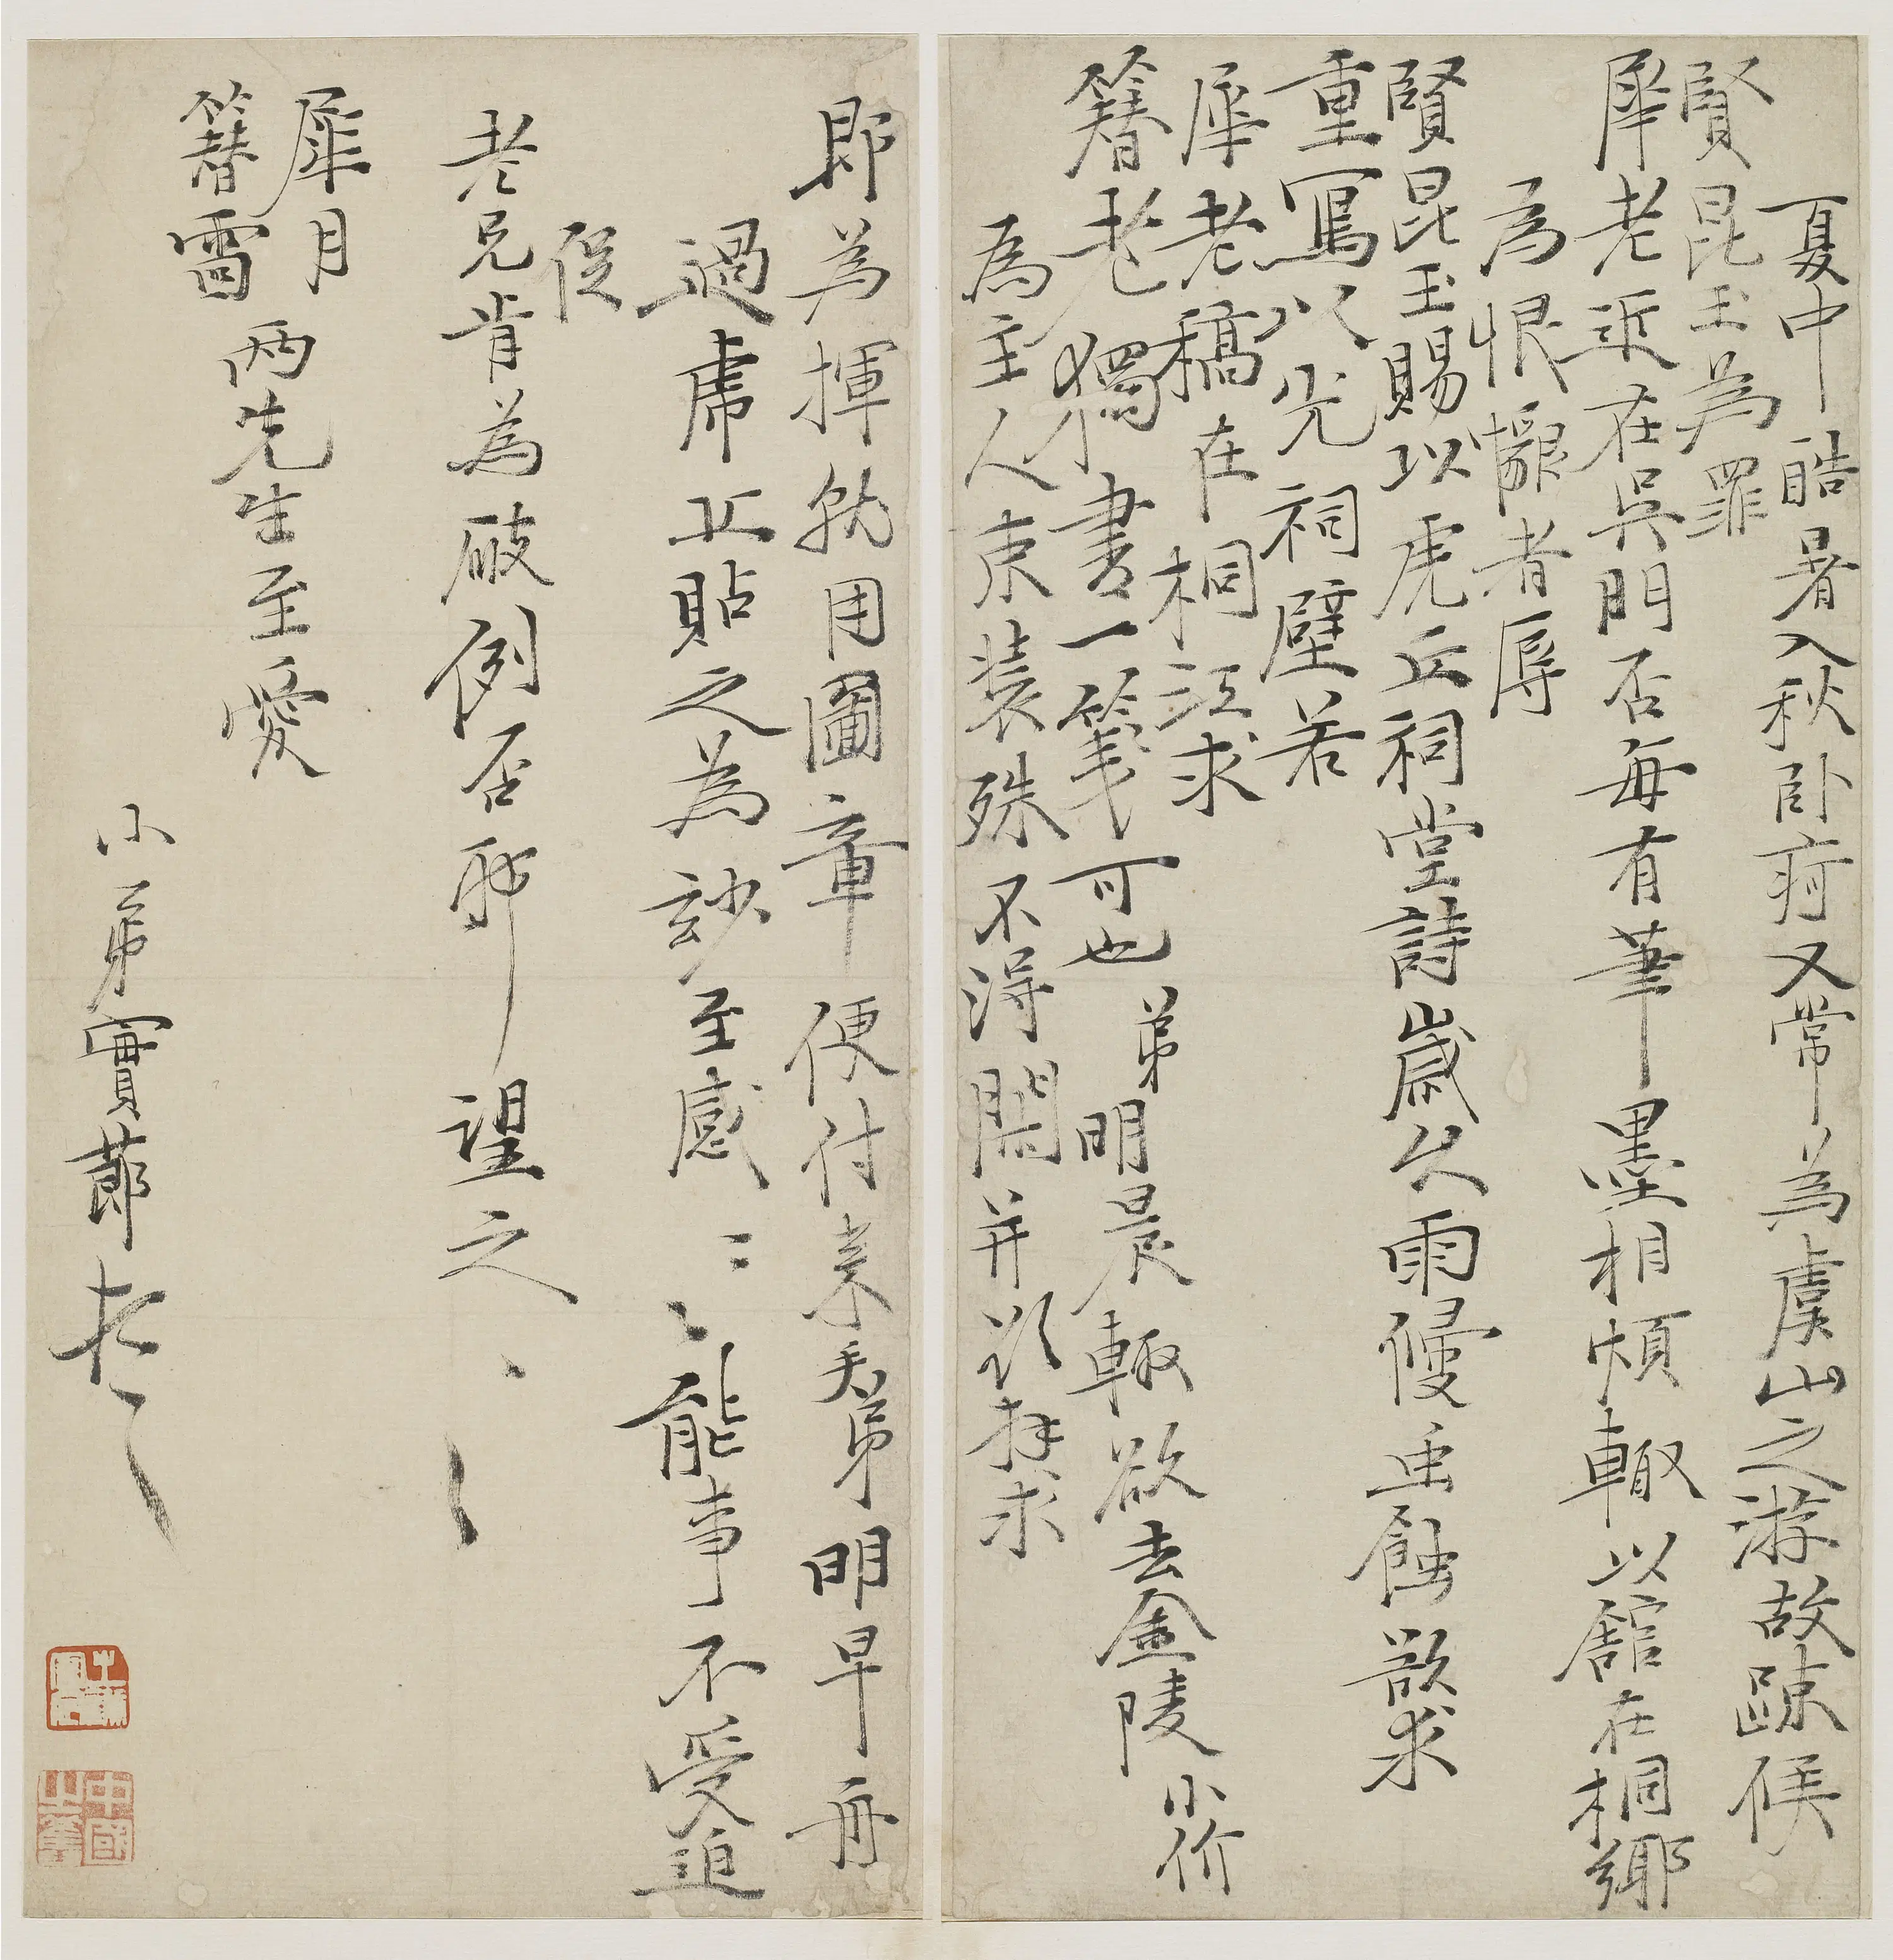 夏中酷暑入秋卧疴又常為虞山之游故疎候
賢昆玉為罪
犀老近在吳門否每有筆墨相煩輒以舘在桐鄉
為恨懶者辱
賢昆玉賜以虎丘祠堂詩歲久雨侵虫蝕敢求
重寫以光祠壁若
犀老稿在桐江求
簪老獨書一箋可也弟明晨輒欲去金陵小价
為主人束裝殊不得閑并以拜求
即為揮就用圖章便付來手弟明早舟
過虎丘貼之為妙至感〻〻能事不受迫
促
老兄肯為破例否耶望之〻
犀月
簪雷兩先生至愛
小弟實莭